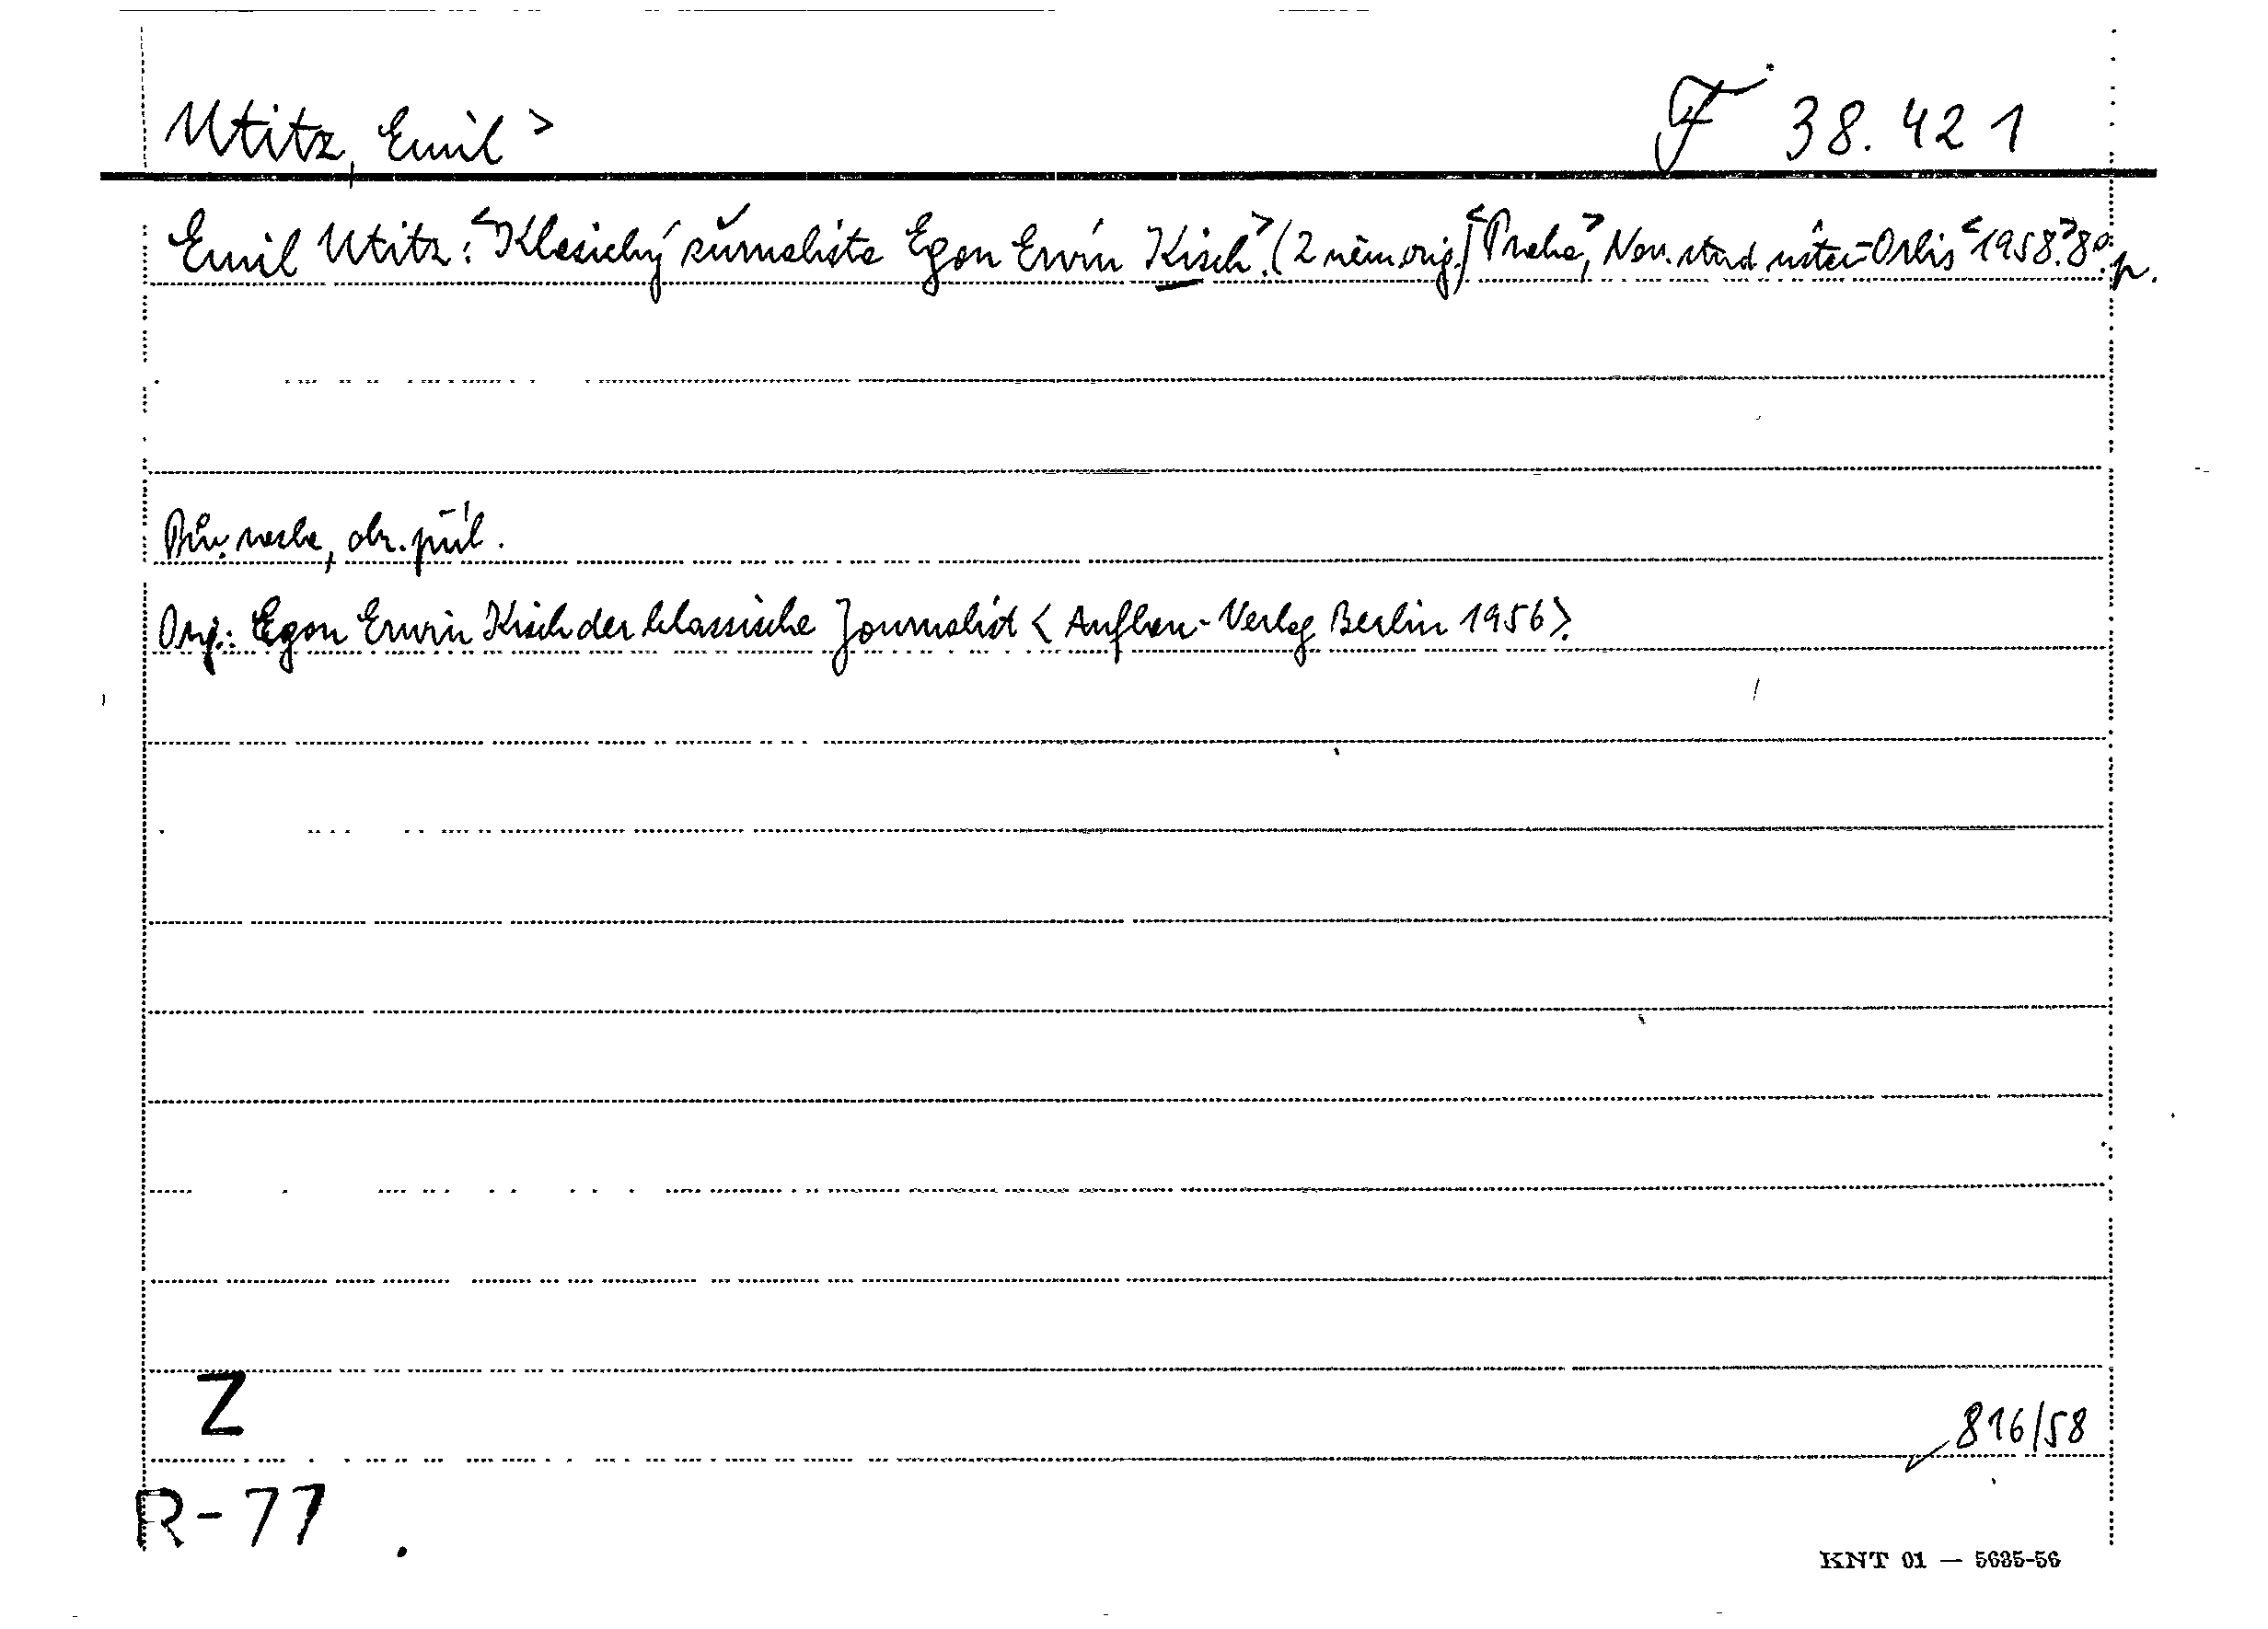 Utitz, Emil > F 38.421
Emil Utitz: <Klasický žurnalista Egon Ervín Kisch.> (Z něm. orig.) <Praha,> Nov. stud. ústav-Orbis <1958.> 8°. p.
Brož., obr. příl.
Orig.: Egon Erwin Kisch der klassische Journalist <Aufbau-Verlag Berlin 1956>.
Z
816/58
R-77
KNT 01 — 5635-56